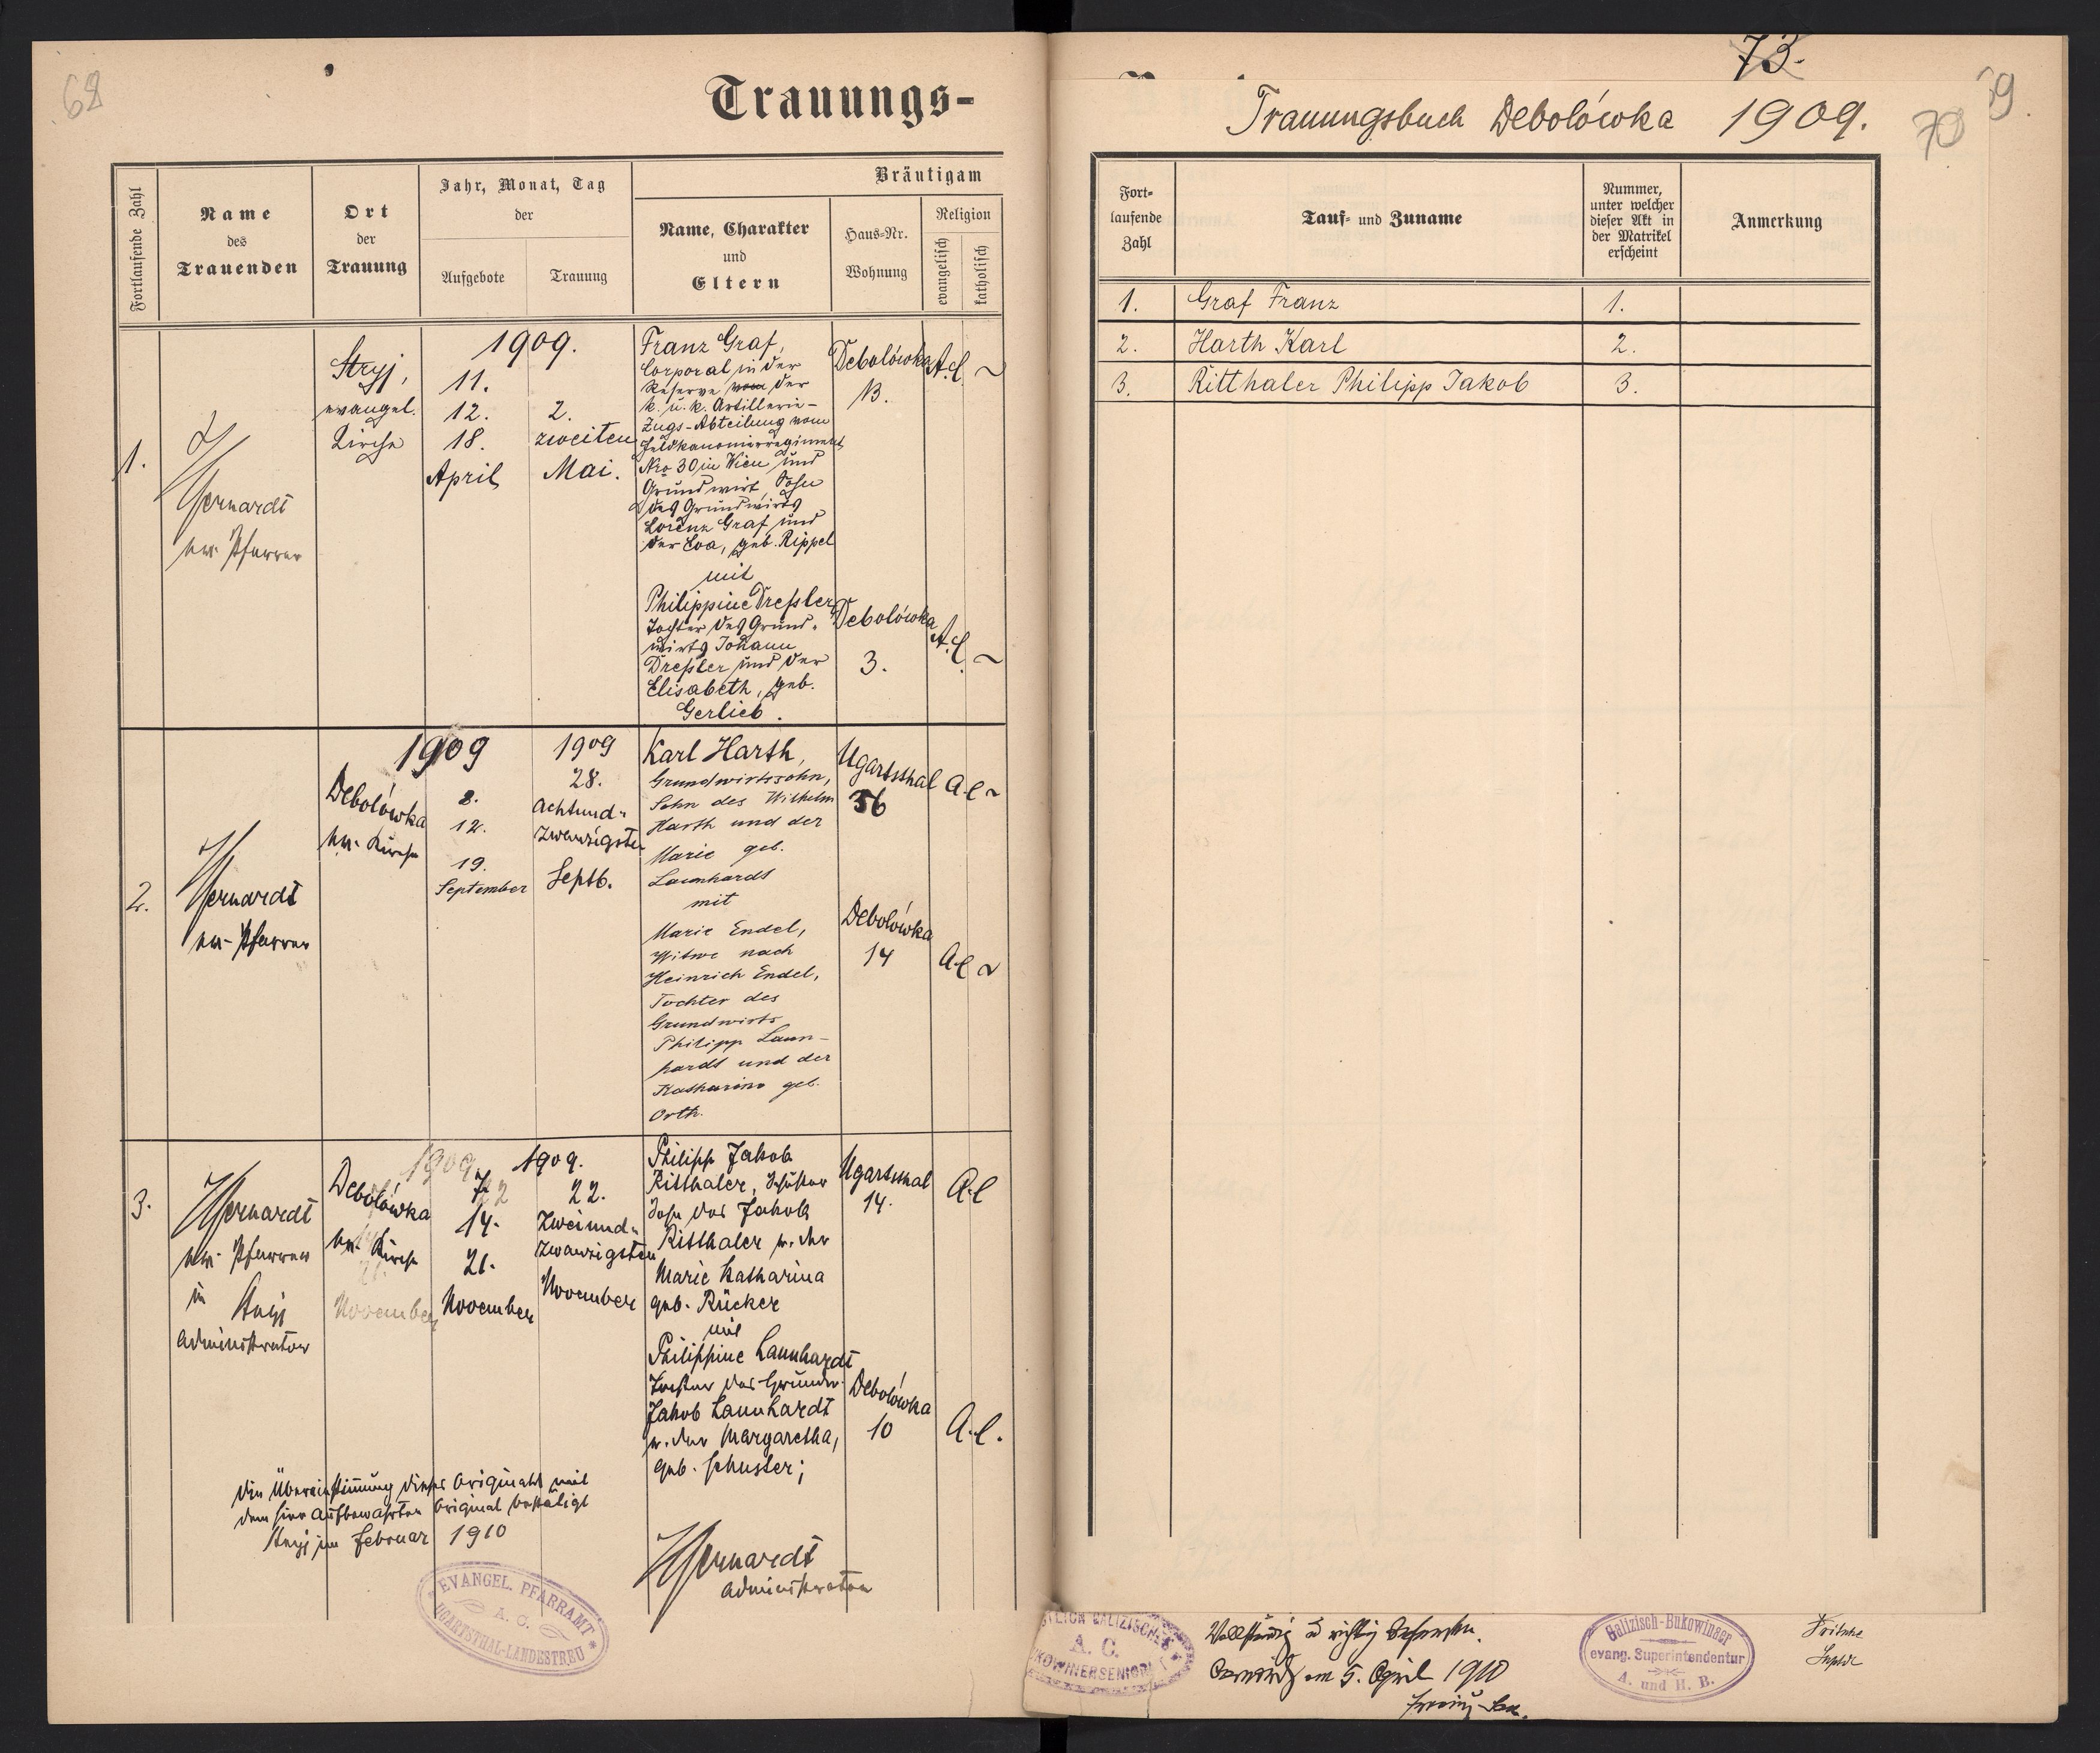 68
Trauungs-
Fortlaufende Zahl
Name
des
Trauenden
Ort
der
Trauung
Jahr, Monat, Tag
der
Aufgebote
Trauung
Bräutigam
Name, Charakter
und
Eltern
Haus-Nr.
Wohnung
Religion
evangelisch
katholisch
1.
Stryj,
evangel.
Kirche
1909.
11.
12.
18.
April
2.
zweiten
Mai.
Franz Graf,
Corporal in der
Reserve vom der
k. u. k. Artillerie-
Zugs-Abteilung vom
Feldkanonierregiment
Nro 30 in Wien und
Grundwirt, Sohn
des Grundwirts
Lorenz Graf und
der Eva, geb. Rippel
mit
Philippine Dreßler,
Tochter des Grund-
wirts Johann
Dreßler und der
Elisabeth, geb.
Gerlieb.
Debolówka
13.
A.C.
Debolówka
3.
A.C.
ev. Pfarrer
2.
ev. Pfarrer
Debolówka
ev. Kirche
1909
12.
19.
September
1909
28.
Achtund-
zwanzigsten
Septb.
Karl Harth,
Grundwirtssohn,
Sohn des Wilhelm
Harth und der
Marie geb.
Launhardt
mit
Marie Endel,
Witwe nach
Heinrich Endel,
Tochter des
Grundwirts
Philipp Laun-
hardt und der
Katharina geb.
Orth.
Ugartsthal
36
A.C
Debolówka
14
A.C
3.
ev. Pfarrer
in Stryj
Administrator
Debolówka
ev. Kirche
November
1909.
14.
21.
November
1909.
22.
Zweiund-
zwanzigsten
November
Philipp Jakob
Ritthaler, Schuster
Sohn des Jakob
Ritthaler u. der
Marie Katharina
geb. Rücker
mit
Philippine Launhardt
Tochter des Grundw.
Jakob Launhardt
u. der Margaretha,
geb. Schuster;
Ugartsthal
14.
A.C
Debolówka
10
A.C.
Die Übereinstimmung dieses Originals mit
dem hier aufbewahrten Original bestätigt
Stryj im Februar 1910
Administrator
EVANGEL. PFARRAMT
A. C.
UGARTSTHAL-LANDESTREU
73.
69.
70
Trauungsbuch Debolówka 1909.
Fort-
laufende
Zahl
Tauf- und Zuname
Nummer,
unter welcher
dieser Akt in
der Matrikel
erscheint
Anmerkung
1. Graf Franz 1.
2. Harth Karl 2.
3. Ritthaler Philipp Jakob 3.
GALIZISCHES
A. C.
Vollständig u richtig befunden.
am 5. April 1910
Galizisch-Bukowinaer
evang. Superintendentur
A. und H. B.
Fritsche
Supdt